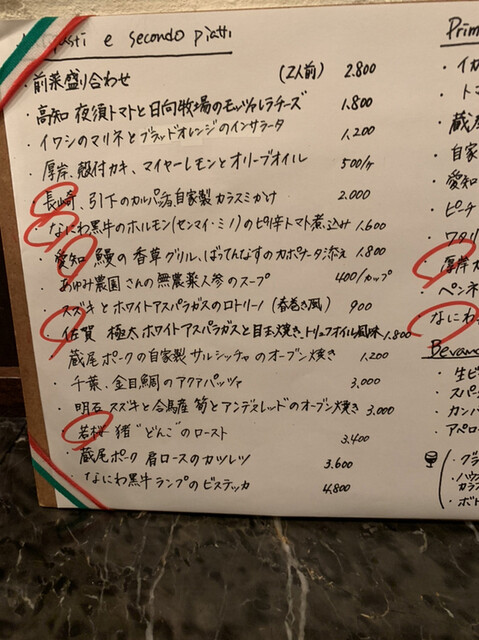 e secondo piatti
・前菜盛り合わせ (2人前) 2.800
・高知 夜須トマトと日向牧場のモッツァレラチーズ 1.800
・イワシのマリネとブラッドオレンジのインサラータ 1.200
・厚岸、殻付カキ、マイヤーレモンとオリーブオイル 500/ヶ
・長崎、引下のカルパッチョ自家製カラスミかけ 2.000
・なにわ黒牛のホルモン(センマイ・ミノ)のピリ辛トマト煮込み 1.600
・愛知 鰻の香草グリル、ばってんなすのカポナータ添え 1.800
・あゆみ農園さんの無農薬人参のスープ 400/カップ
・スズキとホワイトアスパラガスのロトリーノ(春巻き風) 900
・佐賀 極太ホワイトアスパラガスと目玉焼き、トリュフオイル風味 1.800
・蔵尾ポークの自家製サルシッチャのオーブン焼き 1.200
・千葉、金目鯛のアクアパッツァ 3,000
・明石 スズキと合馬産 筍とアンデスレッドのオーブン焼き 3,000
・若桜 猪"どんご"のロースト 3.400
・蔵尾ポーク 肩ロースのカツレツ 3.600
・なにわ黒牛ランプのビステッカ 4,800
Prim
・イカ
・トマ
・蔵尾
・自家
・愛知
・ピーチ
・ワタリ
・厚岸カ
・ペンネ
なにわ
Bevan
・生ビ
・スパー
・カンパ
・アペロー
・グラ
・ハウ
カラ
・ボト